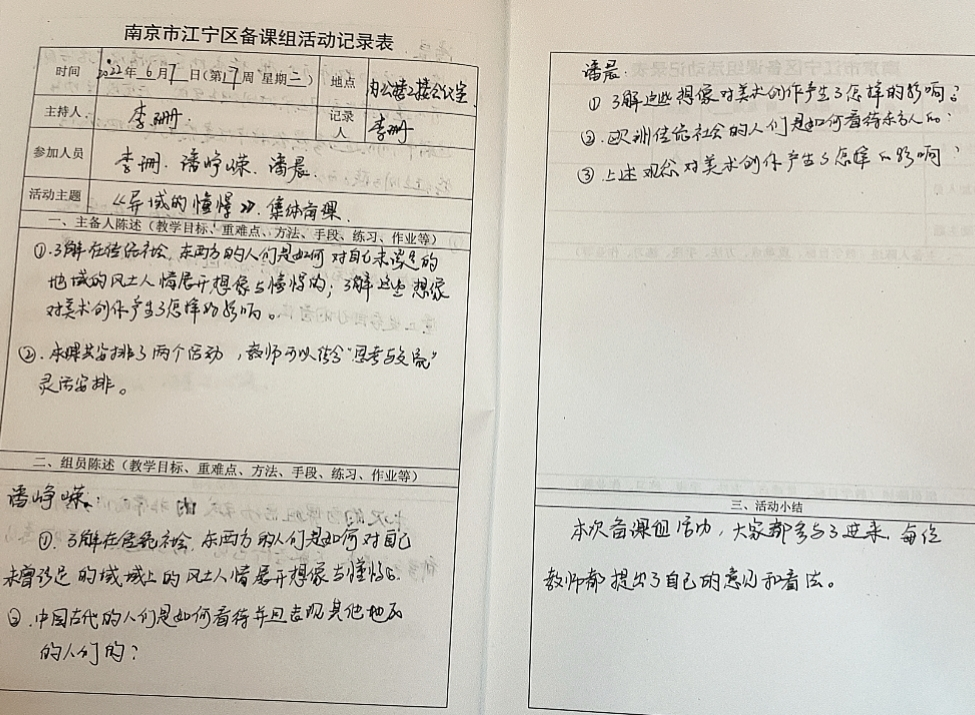 南京市江宁区备课组活动记录表
时间 2022年6月7日(第17周 星期二) 地点 办公楼2楼会议室
主持人 李珊 记录人 李珊
参加人员 李珊、潘峥嵘、潘晨.
活动主题 《异域的憧憬》.集体备课.
一、主备人陈述（教学目标、重难点、方法、手段、练习、作业等）
①.了解在传统社会,东西方的人们是如何对自己未涉足的
地域的风土人情展开想像与憧憬的；了解这些想像
对美术创作产生了怎样的影响。
②.本课共安排了两个活动，教师可以结合“思考与交流”
灵活安排。
二、组员陈述（教学目标、重难点、方法、手段、练习、作业等）
潘峥嵘：
①.了解在传统社会,东西方的人们是如何对自己
未曾涉足的域域上的风土人情展开想像与憧憬的.
②.中国古代的人们是如何看待并且表现其他地区
的人们的？
潘晨：
①了解这些想像对美术创作产生了怎样的影响？
②.欧洲传统社会的人们是如何看待东方人的？
③上述观念对美术创作产生了怎样的影响？
三、活动小结
本次备课组活动，大家都参与了进来,每位
教师都提出了自己的意见和看法。